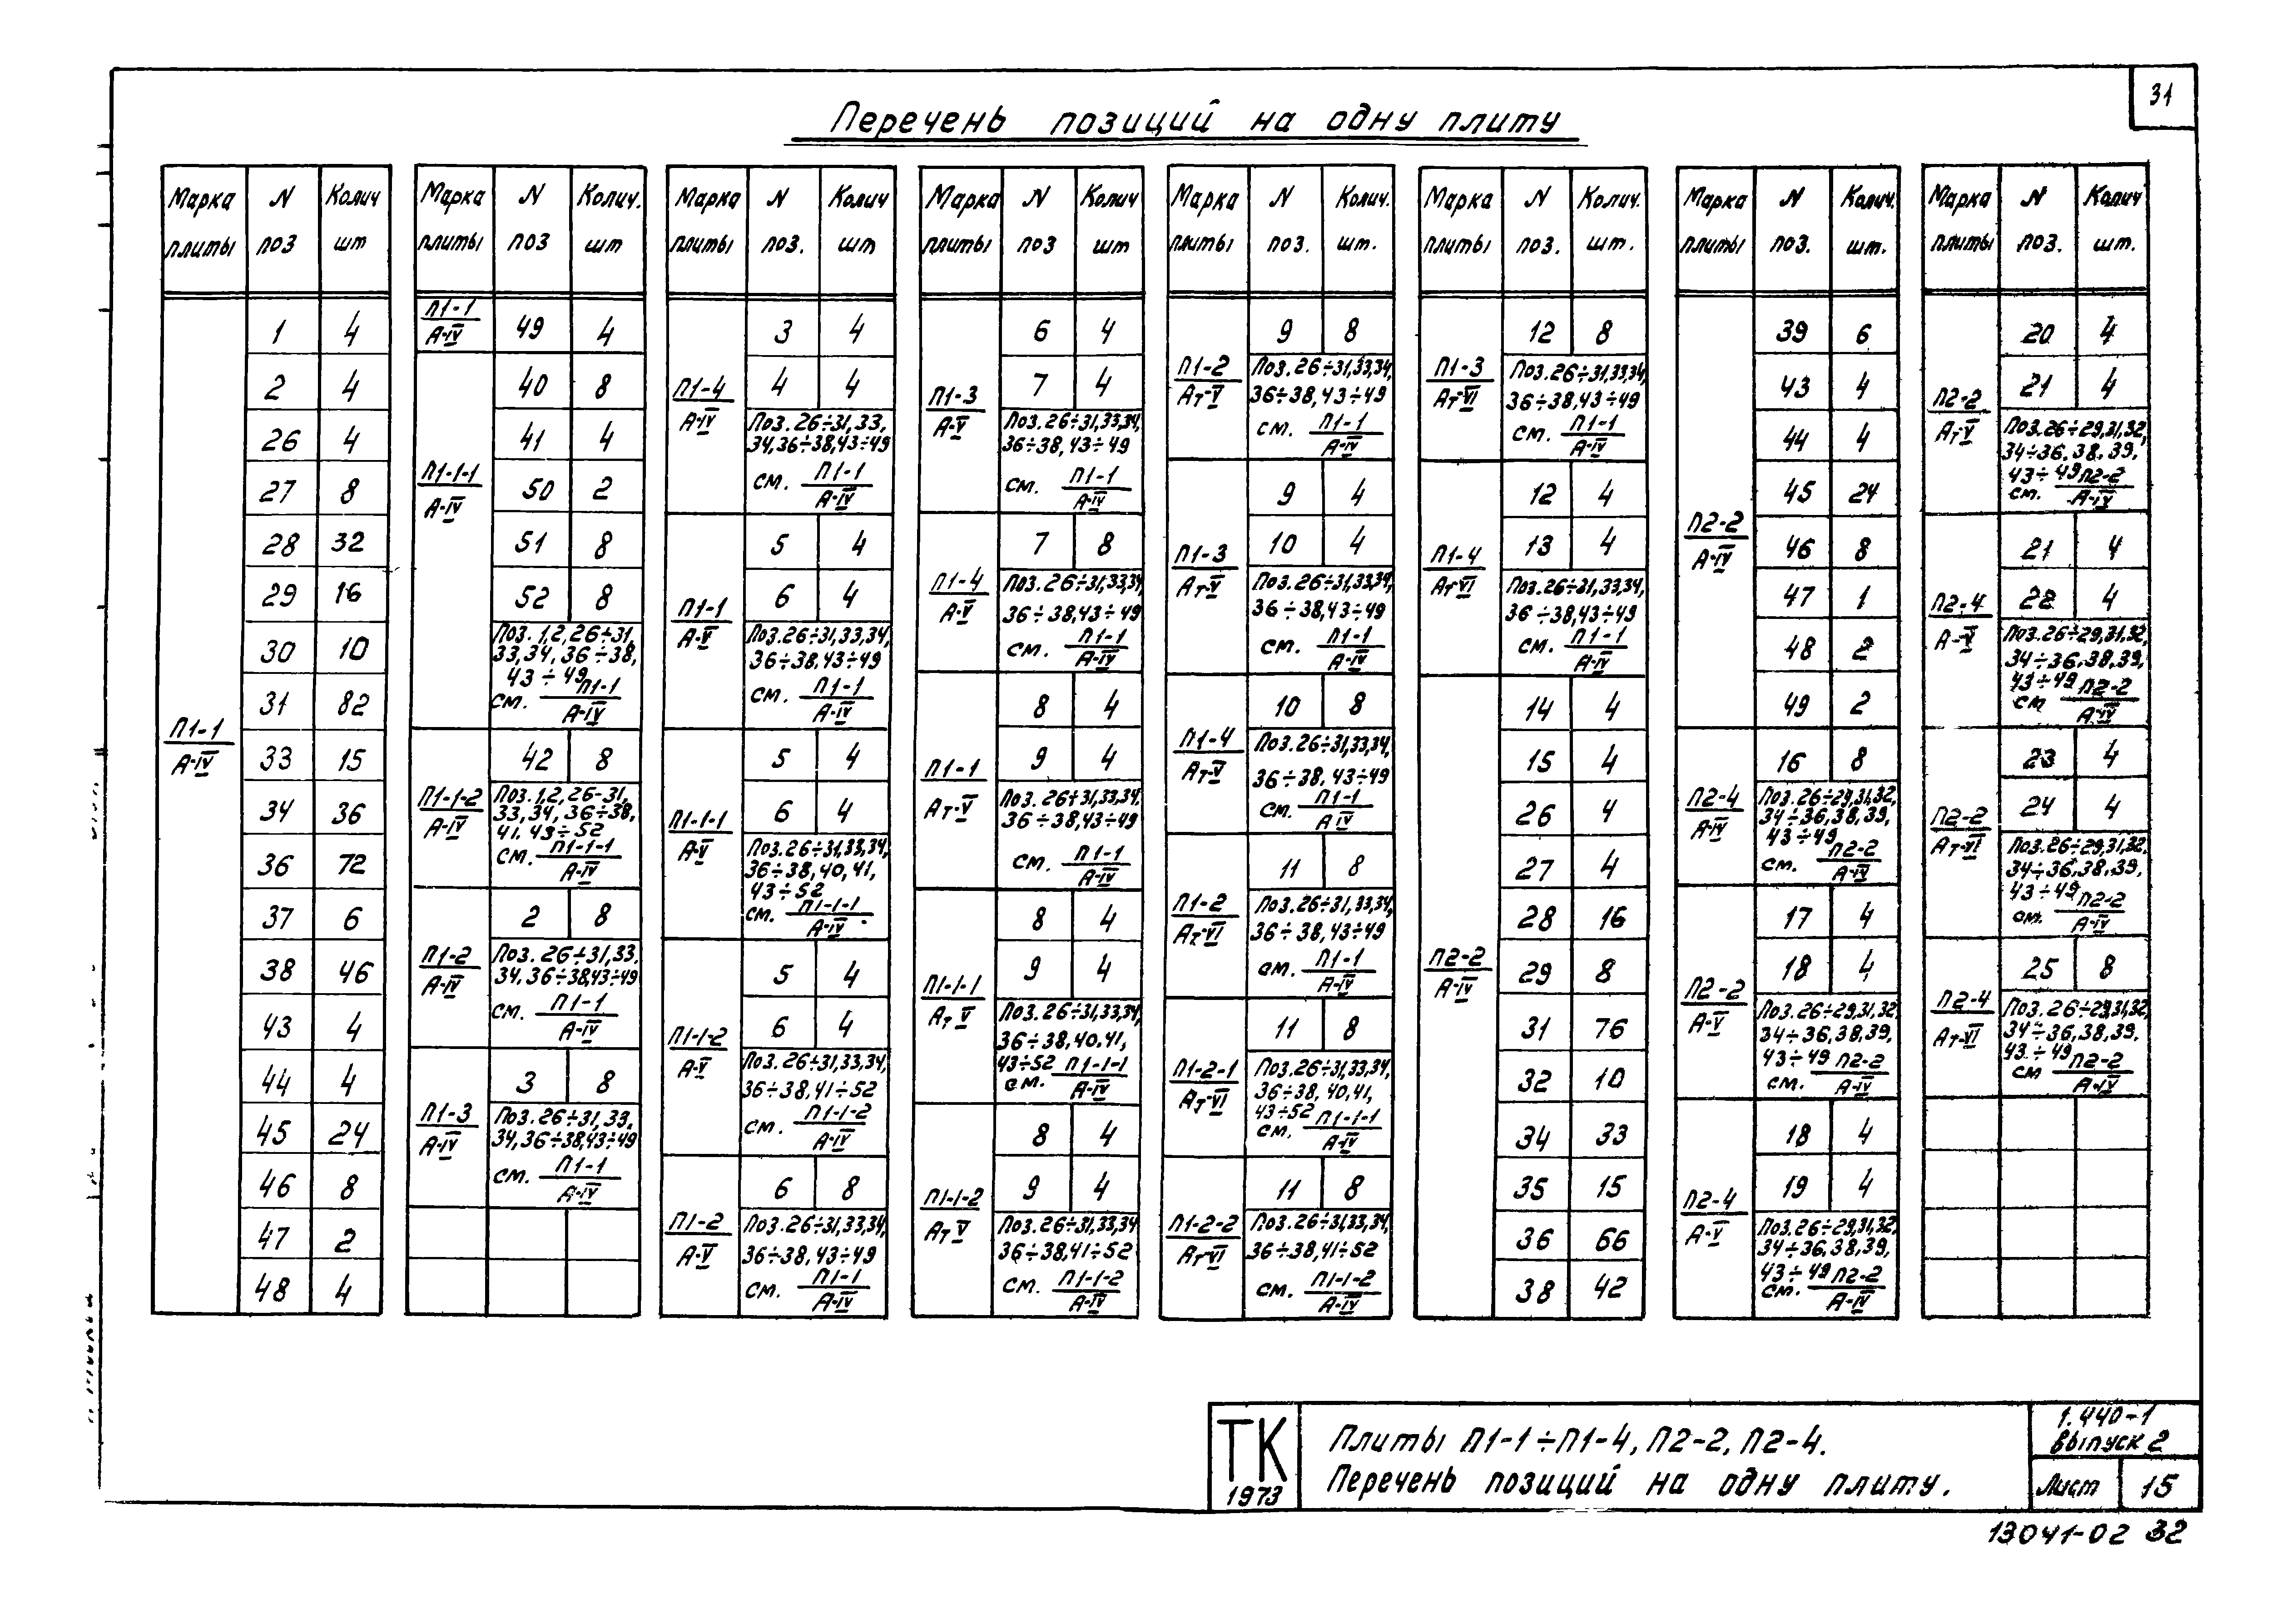 31
Перечень позиций на одну плиту
Марка плиты N поз Колич шт
П1-1
А-IV
1 4
2 4
26 4
27 8
28 32
29 16
30 10
31 82
33 15
34 36
36 72
37 6
38 46
43 4
44 4
45 24
46 8
47 2
48 4
Марка плиты N поз Колич. шт
П1-1
А-IV
49 4
П1-1-1
А-IV
40 8
41 4
50 2
51 8
52 8
Поз. 1,2,26÷31,
33,34, 36÷38,
43÷49
см. П1-1
А-IV
П1-1-2
А-IV
42 8
Поз. 1,2, 26-31,
33, 34, 36÷38,
41, 43÷52
см. П1-1-1
А-IV
П1-2
А-IV
2 8
Поз. 26÷31,33,
34,36÷38,43÷49
см. П1-1
А-IV
П1-3
А-IV
3 8
Поз. 26÷31, 33,
34,36÷38,43÷49
см. П1-1
А-IV
Марка плиты N поз. Колич шт
П1-4
А-IV
3 4
4 4
Поз. 26÷31,33,
34,36÷38,43÷49
см. П1-1
А-IV
П1-1
А-V
5 4
6 4
Поз.26÷31,33,34,
36÷38,43÷49
см. П1-1
А-IV
П1-1-1
А-V
5 4
6 4
Поз.26÷31,33,34,
36÷38, 40, 41,
43÷52
см. П1-1-1
А-IV
П1-1-2
А-V
5 4
6 4
Поз. 26÷31,33,34,
36÷38, 41÷52
см. П1-1-2
А-IV
П1-2
А-V
6 8
Поз. 26÷31,33,34,
36÷38, 43÷49
см. П1-1
А-IV
Марка плиты N поз Колич шт
П1-3
А-V
6 4
7 4
Поз. 26÷31,33,34,
36÷38, 43÷49
см. П1-1
А-IV
П1-4
А-V
7 8
Поз. 26÷31,33,34,
36÷38,43÷49
см. П1-1
А-IV
П1-1
Ат-V
8 4
9 4
Поз. 26÷31,33,34,
36÷38,43÷49
см. П1-1
А-IV
П1-1-1
Ат V
8 4
9 4
Поз. 26÷31,33,34,
36÷38,40,41,
43÷52
см. П1-1-1
А-IV
П1-1-2
Ат V
8 4
9 4
Поз. 26÷31,33,34
36÷38,41÷52
см. П1-1-2
А-IV
Марка плиты N поз. Колич. шт.
П1-2
Ат-V
9 8
Поз. 26÷31,33,34,
36÷38, 43÷49
см. П1-1
А-IV
П1-3
Ат-V
9 4
10 4
Поз. 26÷31,33,34,
36÷38,43÷49
см. П1-1
А-IV
П1-4
Ат-V
10 8
Поз. 26÷31,33,34,
36÷38, 43÷49
см. П1-1
А IV
П1-2
Ат-VI
11 8
Поз. 26÷31,33,34,
36÷38, 43÷49
см. П1-1
А-IV
П1-2-1
Ат-VI
11 8
Поз. 26÷31,33,34,
36÷38, 40,41,
43÷52
см. П1-1-1
А-IV
П1-2-2
Ат-VI
11 8
Поз. 26÷31,33,34,
36÷38,41÷52
см. П1-1-2
А-IV
Марка плиты N поз. Колич. шт.
П1-3
Ат-VI
12 8
Поз. 26÷31,33,34,
36÷38,43÷49
см. П1-1
А-IV
П1-4
Ат VI
12 4
13 4
Поз. 26÷31,33,34,
36÷38,43÷49
см. П1-1
А-IV
П2-2
А-IV
14 4
15 4
26 4
27 4
28 16
29 8
31 76
32 10
34 33
35 15
36 66
38 42
Марка плиты N поз. Колич. шт.
П2-2
А-IV
39 6
43 4
44 4
45 24
46 8
47 1
48 2
49 2
П2-4
А-IV
16 8
Поз. 26÷29,31,32,
34÷36,38,39,
43÷49
см. П2-2
А-IV
П2-2
А-V
17 4
18 4
Поз. 26÷29,31,32,
34÷36,38,39,
43÷49
см. П2-2
А-IV
П2-4
А-V
18 4
19 4
Поз. 26÷29,31,32,
34÷36,38,39,
43÷49
см. П2-2
А-IV
Марка плиты N поз. Колич шт.
П2-2
Ат-V
20 4
21 4
Поз. 26÷29,31,32,
34÷36, 38, 39,
43÷49
см. П2-2
А-IV
П2-4
А-V
21 4
22 4
Поз. 26÷29,31,32,
34÷36,38,39,
43÷49
см П2-2
А-IV
П2-2
Ат-VI
23 4
24 4
Поз. 26÷29,31,32,
34÷36,38,39,
43÷49
см. П2-2
А-IV
П2-4
Ат-VI
25 8
Поз. 26÷29,31,32,
34÷36,38,39,
43÷49
см П2-2
А-IV
ТК
1973
Плиты П1-1÷П1-4, П2-2, П2-4.
Перечень позиций на одну плиту.
1.440-1
выпуск 2
Лист 15
13041-02 32